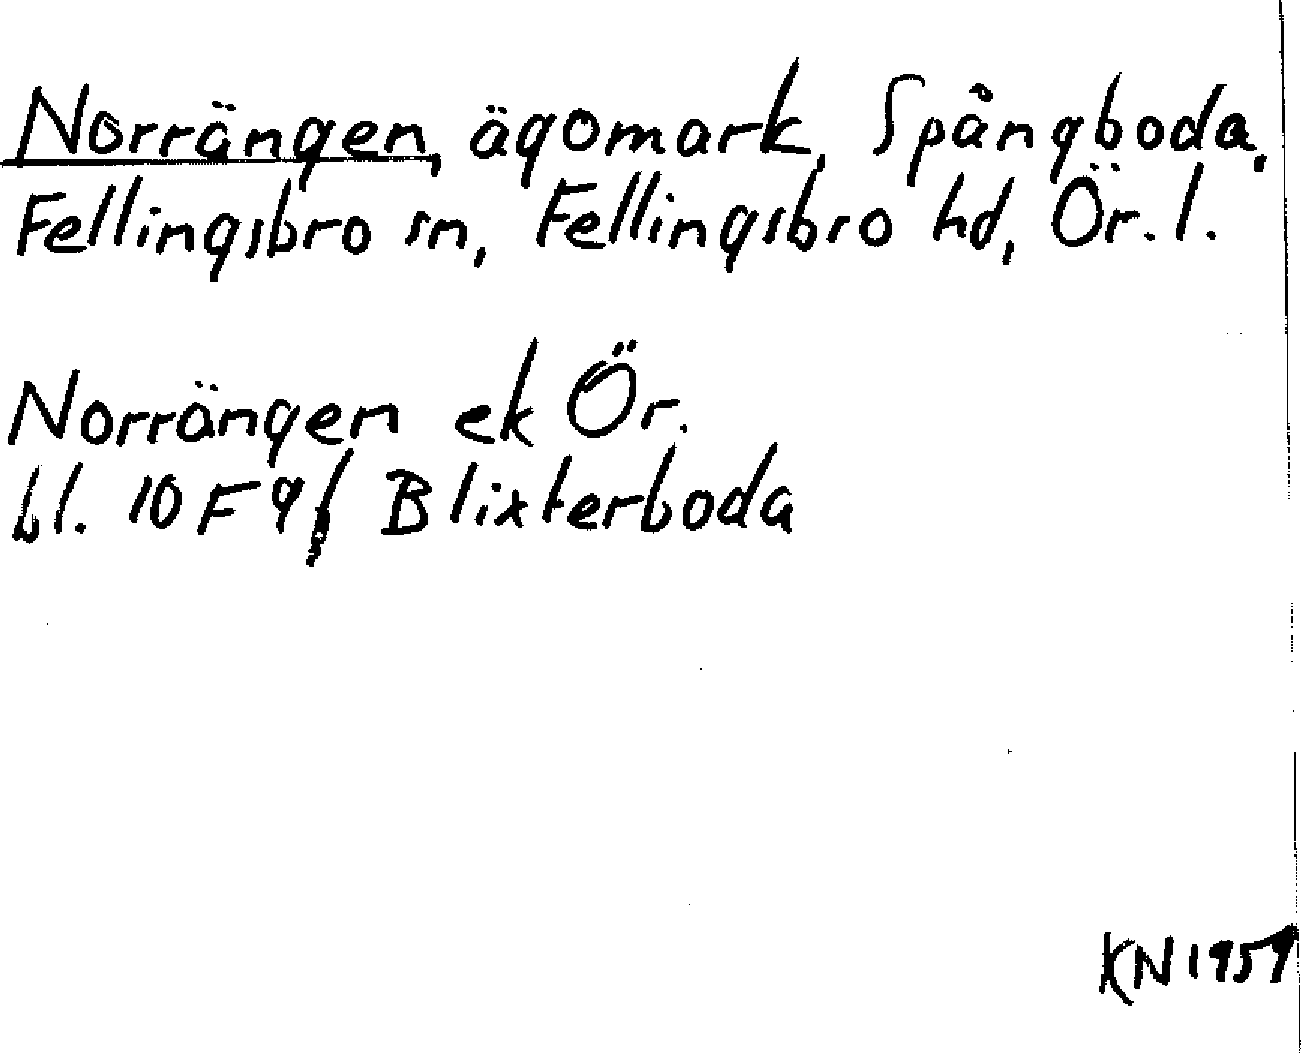 Norrängen, ägomark, Spångboda,
Fellingsbro sn, Fellingsbro hd, Ör. l.
Norrängen ek Ör.
bl. 10 F 9 f Blixterboda
KN 1959